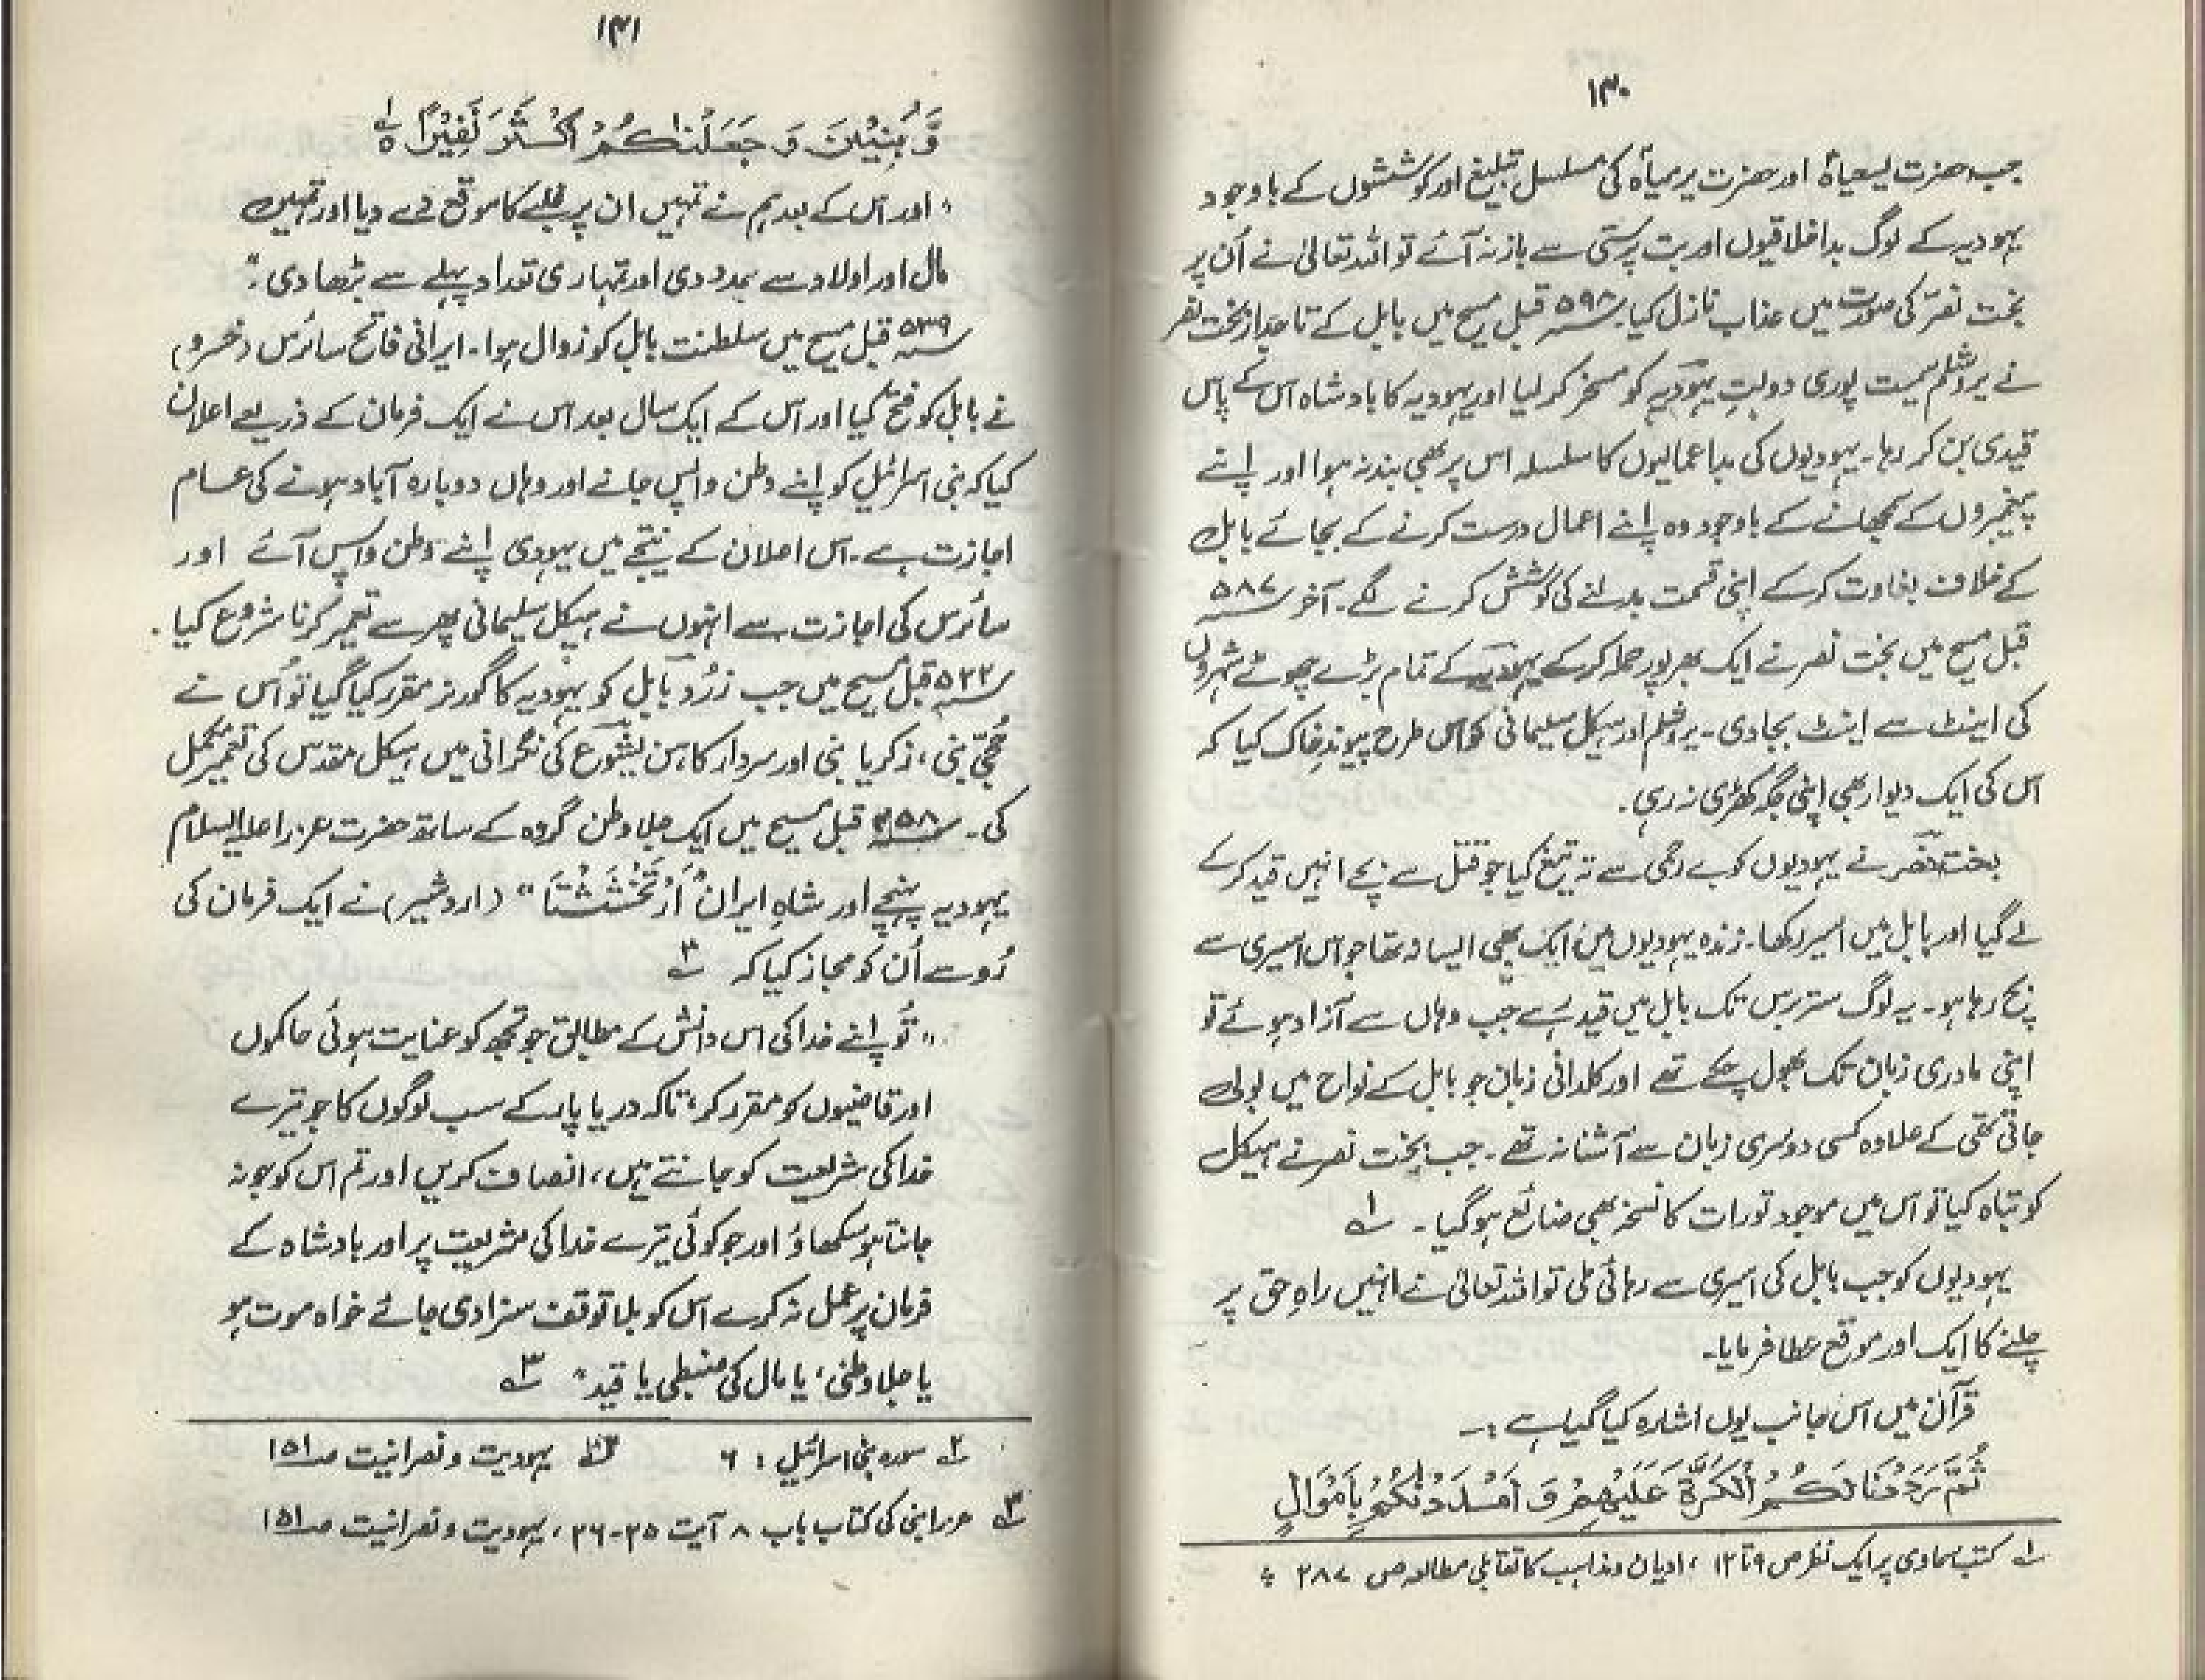 ۱۳۰
جب حضرت یسعیاہؑ اور حضرت یرمیاہؑ کی مسلسل تبلیغ اور کوششوں کے باوجود
یہودیہ کے لوگ بداخلاقیوں اور بت پرستی سے باز نہ آئے تو اللہ تعالیٰ نے اُن پر
بخت نصر کی صورت میں عذاب نازل کیا۔ ۵۹۸؁ قبل مسیح میں بابل کے تاجدار بخت نصر
نے یروشلم سمیت پوری دولتِ یہودیہ کو مسخر کر لیا اور یہودیہ کا بادشاہ اس کے پاس
قیدی بن کر رہا۔ یہودیوں کی بداعمالیوں کا سلسلہ اس پر بھی بند نہ ہوا اور اپنے
پیغمبروں کے سمجھانے کے باوجود وہ اپنے اعمال درست کرنے کے بجائے بابل
کے خلاف بغاوت کر کے اپنی قسمت بدلنے کی کوشش کرنے لگے۔ آخر ۵۸۷؁
قبل مسیح میں بخت نصر نے ایک بھرپور حملہ کر کے یہودیہ کے تمام بڑے چھوٹے شہروں
کی اینٹ سے اینٹ بجا دی۔ یروشلم اور ہیکل سلیمانی کو اس طرح پیوندِ خاک کیا کہ
اس کی ایک دیوار بھی اپنی جگہ کھڑی نہ رہی۔
بخت نصر نے یہودیوں کو بے رحمی سے تہ تیغ کیا جو قتل سے بچے انہیں قید کر کے
لے گیا اور بابل میں اسیر رکھا۔ زندہ یہودیوں میں ایک بھی ایسا نہ تھا جو اس اسیری سے
بچ رہا ہو۔ یہ لوگ ستر برس تک بابل میں قید رہے جب وہاں سے آزاد ہوئے تو
اپنی مادری زبان تک بھول چکے تھے اور کلدانی زبان جو بابل کے نواح میں بولی
جاتی تھی کے علاوہ کسی دوسری زبان سے آشنا نہ تھے۔ جب بخت نصر نے ہیکل
کو تباہ کیا تو اس میں موجود تورات کا نسخہ بھی ضائع ہو گیا۔ ۱؎
یہودیوں کو جب بابل کی اسیری سے رہائی ملی تو اللہ تعالیٰ نے انہیں راہِ حق پر
چلنے کا ایک اور موقع عطا فرمایا۔
قرآن میں اس جانب یوں اشارہ کیا گیا ہے :۔
ثُمَّ رَدَدْنَا لَكُمُ الْكَرَّةَ عَلَيْهِمْ وَ اَمْدَدْنٰكُمْ بِاَمْوَالٍ
۱؎ کتب سماوی پر ایک نظر ص ۹ تا ۱۲ ، ادیان و مذاہب کا تقابلی مطالعہ ص ۲۸۷
۱۳۱
وَّ بَنِيْنَ وَ جَعَلْنٰكُمْ اَكْثَرَ نَفِيْرًا ۱؎
"اور اس کے بعد ہم نے تمہیں ان پر غلبے کا موقع دے دیا اور تمہیں
مال اور اولاد سے مدد دی اور تمہاری تعداد پہلے سے بڑھا دی۔"
۵۳۹؁ قبل مسیح میں سلطنت بابل کو زوال ہوا۔ ایرانی فاتح سائرس (خسرو)
نے بابل کو فتح کیا اور اس کے ایک سال بعد اس نے ایک فرمان کے ذریعے اعلان
کیا کہ بنی اسرائیل کو اپنے وطن واپس جانے اور وہاں دوبارہ آباد ہونے کی عام
اجازت ہے۔ اس اعلان کے نتیجے میں یہودی اپنے وطن واپس آئے اور
سائرس کی اجازت سے انہوں نے ہیکل سلیمانی پھر سے تعمیر کرنا شروع کیا۔
۵۲۲؁ قبل مسیح میں جب زرُد بابل کو یہودیہ کا گورنر مقرر کیا گیا تو اُس نے
حجّی نبی، زکریا نبی اور سردار کاہن یشوع کی نگرانی میں ہیکل مقدس کی تعمیر مکمل
کی۔ ۴۵۸؁ قبل مسیح میں ایک جلاوطن گروہ کے ساتھ حضرت عزرا علیہ السلام
یہودیہ پہنچے اور شاہِ ایران "اَرْتَخْشَشْتَا" (اردشیر) نے ایک فرمان کی
رُو سے اُن کو مجاز کیا کہ ۳؎
"تُو اپنے خدا کی اس دانش کے مطابق جو تجھ کو عنایت ہوئی حاکموں
اور قاضیوں کو مقرر کر، تاکہ دریا پار کے سب لوگوں کا جو تیرے
خدا کی شریعت کو جانتے ہیں، انصاف کریں اور تم اس کو جو نہ
جانتا ہو سکھاؤ اور جو کوئی تیرے خدا کی شریعت پر اور بادشاہ کے
فرمان پر عمل نہ کرے اس کو بلا توقف سزا دی جائے خواہ موت ہو
یا جلاوطنی، یا مال کی ضبطی یا قید" ۳؎
۲؎ سورہ بنی اسرائیل : ۶ یہودیت و نصرانیت صـ۱۵۱
۳؎ عزرا نبی کی کتاب باب ۸ آیت ۲۵-۲۶، یہودیت و نصرانیت صـ۱۵۱